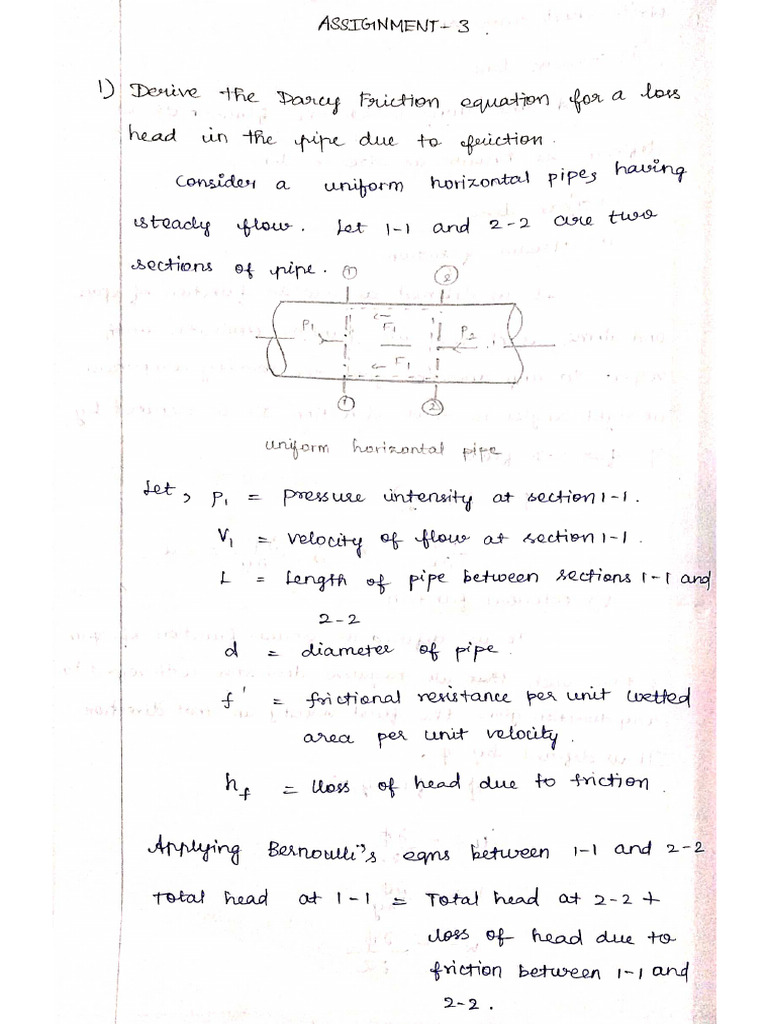 ASSIGNMENT-3.
1) Derive the Darcy Friction equation for a loss
head in the pipe due to friction.
Consider a uniform horizontal pipes having
steady flow. Let 1-1 and 2-2 are two
sections of pipe.
① ②
P1 F1 P2
F1
① ②
uniform horizontal pipe
Let, P1 = pressure intensity at section 1-1.
V1 = velocity of flow at section 1-1.
L = Length of pipe between sections 1-1 and
2-2
d = diameter of pipe.
f' = frictional resistance per unit wetted
area per unit velocity.
hf = loss of head due to friction.
Applying Bernoulli's eqns between 1-1 and 2-2
Total head at 1-1 = Total head at 2-2 +
loss of head due to
friction between 1-1 and
2-2.